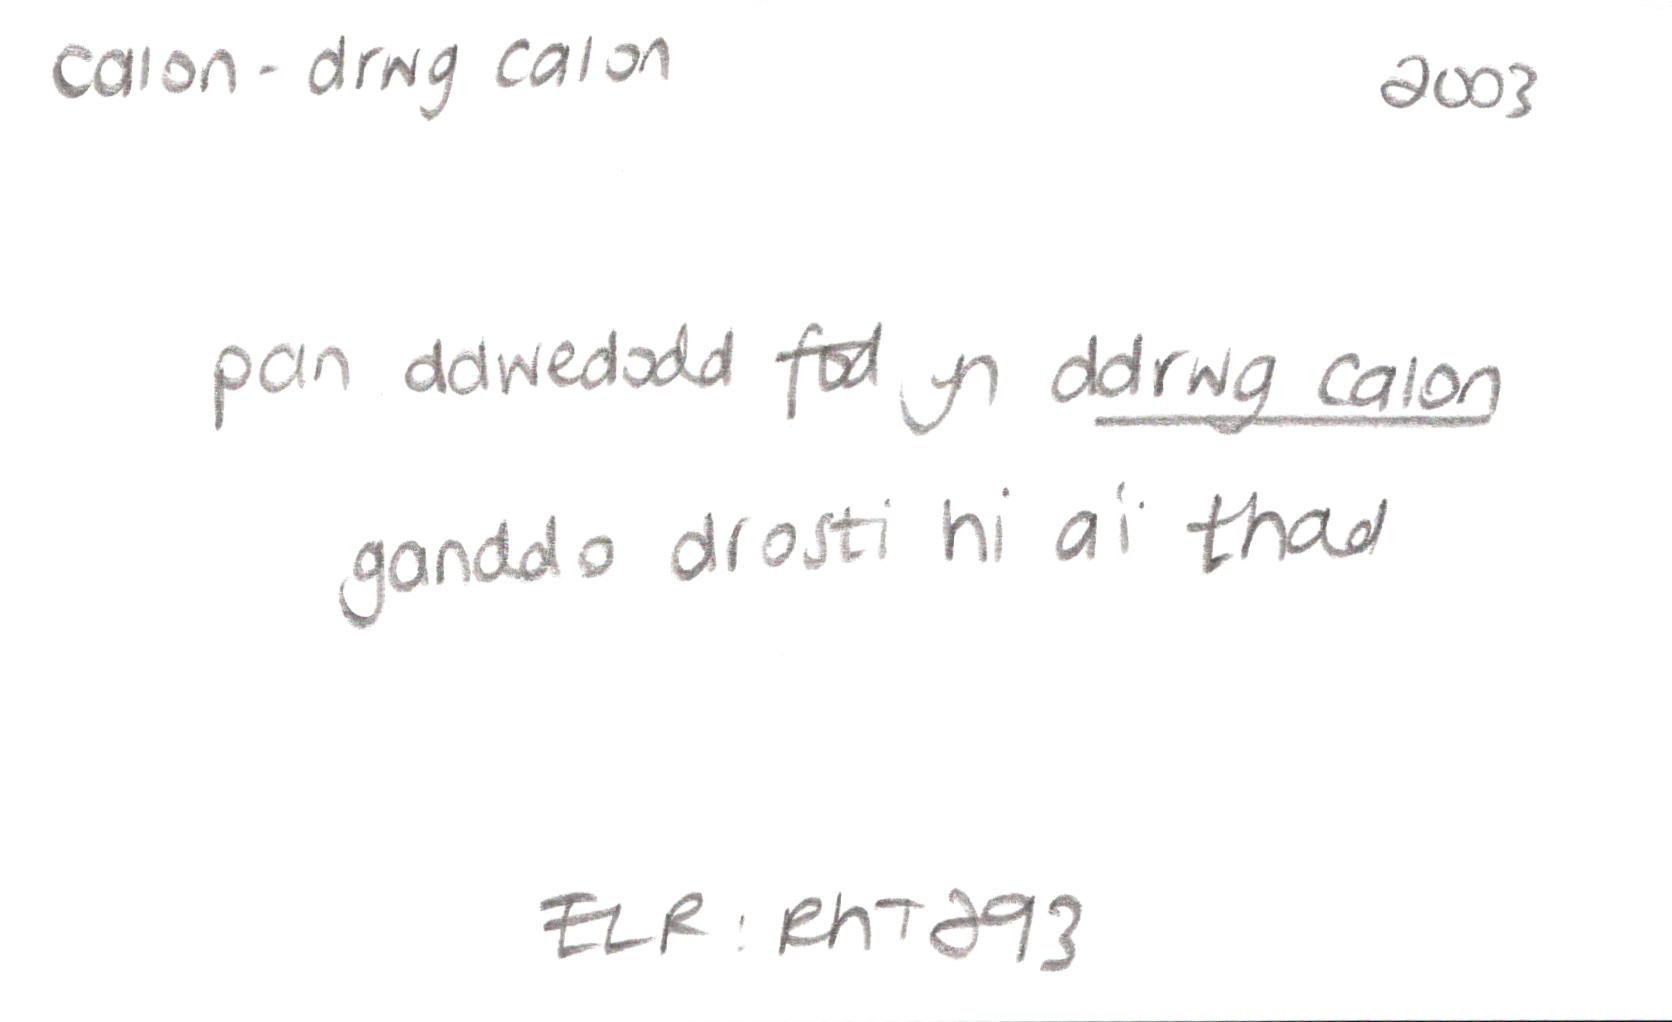 calon - drwg calon 2003
pan ddwedodd fod yn ddrwg calon
ganddo drosti hi a'i thad
ELR: RhT 293